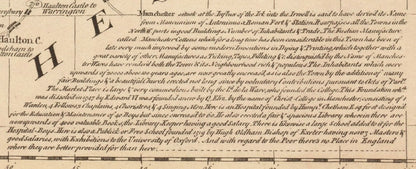 to Haslton Castle
Warrington
Halton C.
H E S
Manchester seated at the Influx of the Irk into the Irwell is said to have deriv'd the Name
from Mancunium of Antoninus a Roman Fort & Station. It surpasses all the Towns in the
North of ports in good Buildings, Number of Inhabitants & Trade. The Fustian Manufacture
called Manchester Cottons which for a long time has been considerable in this Town has been of
late very much improved by some modern Inventions in Dying & Printing, which together with a
great variety of other Manufactures, as Ticking, Tapes, Filleting &c. distinguish'd by the Name of Manches-
ter Wares have render'd both the Town & its Neighbourhood rich & populous. The Inhabitants which were
upwards of 20000 above 90 years ago, are now greatly increas'd as is also the Town by the additions of many
fair Buildings & a beautiful Church erected not long since by voluntary Contributions, pursuant to Acts of Parlt.
The Market Place is large & very commodious, built by the Ld. de la Ware, who founded the College. This Foundation wch.
was dissolved in 1547 by Edward VI was founded anew by Q. Eliz. by the name of Christ College in Manchester, consisting of a
Warden, 4 Fellows, 2 Chaplains, 4 Choristers & 4 Singing men. Here is an Hospital founded by Humpy. Chetham Esq. first designed
for the Education & Maintenance of 40 Boys but since encreased to 60. He also erected a fair & spacious Library wherein there are
upwards of 4000 valuable Books, the Library Keeper having a good Salary. There is likewise a large School added to it for the
Hospital Boys. Here is also a Publick or Free School founded 1519 by Hugh Oldham Bishop of Exeter having now 3 Masters &
good Salaries, with Exhibitions to the University of Oxford. And with regard to the Poor there's no Place in England
where they are better provided for than here.